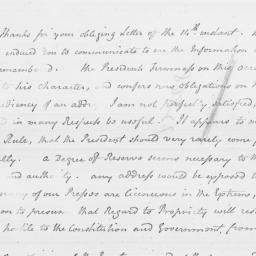 Thanks for your obliging Letter of the 14th instant.
induced you to communicate to me the Information
remembered. The Presidents Firmness on this occ
to his character, and confers new obligations on
expediency of an addr. I am not perfectly satisfied,
in many Respects be useful. It appears to m
Rule, that the President should very rarely come f
ally. a Degree of Reserve seems necessary to th
and authority. any address would be exposed t
many of our Presses are licentious in the Extreme,
on to presume that Regard to Propriety will rest
hostile to the Constitution and Government, from